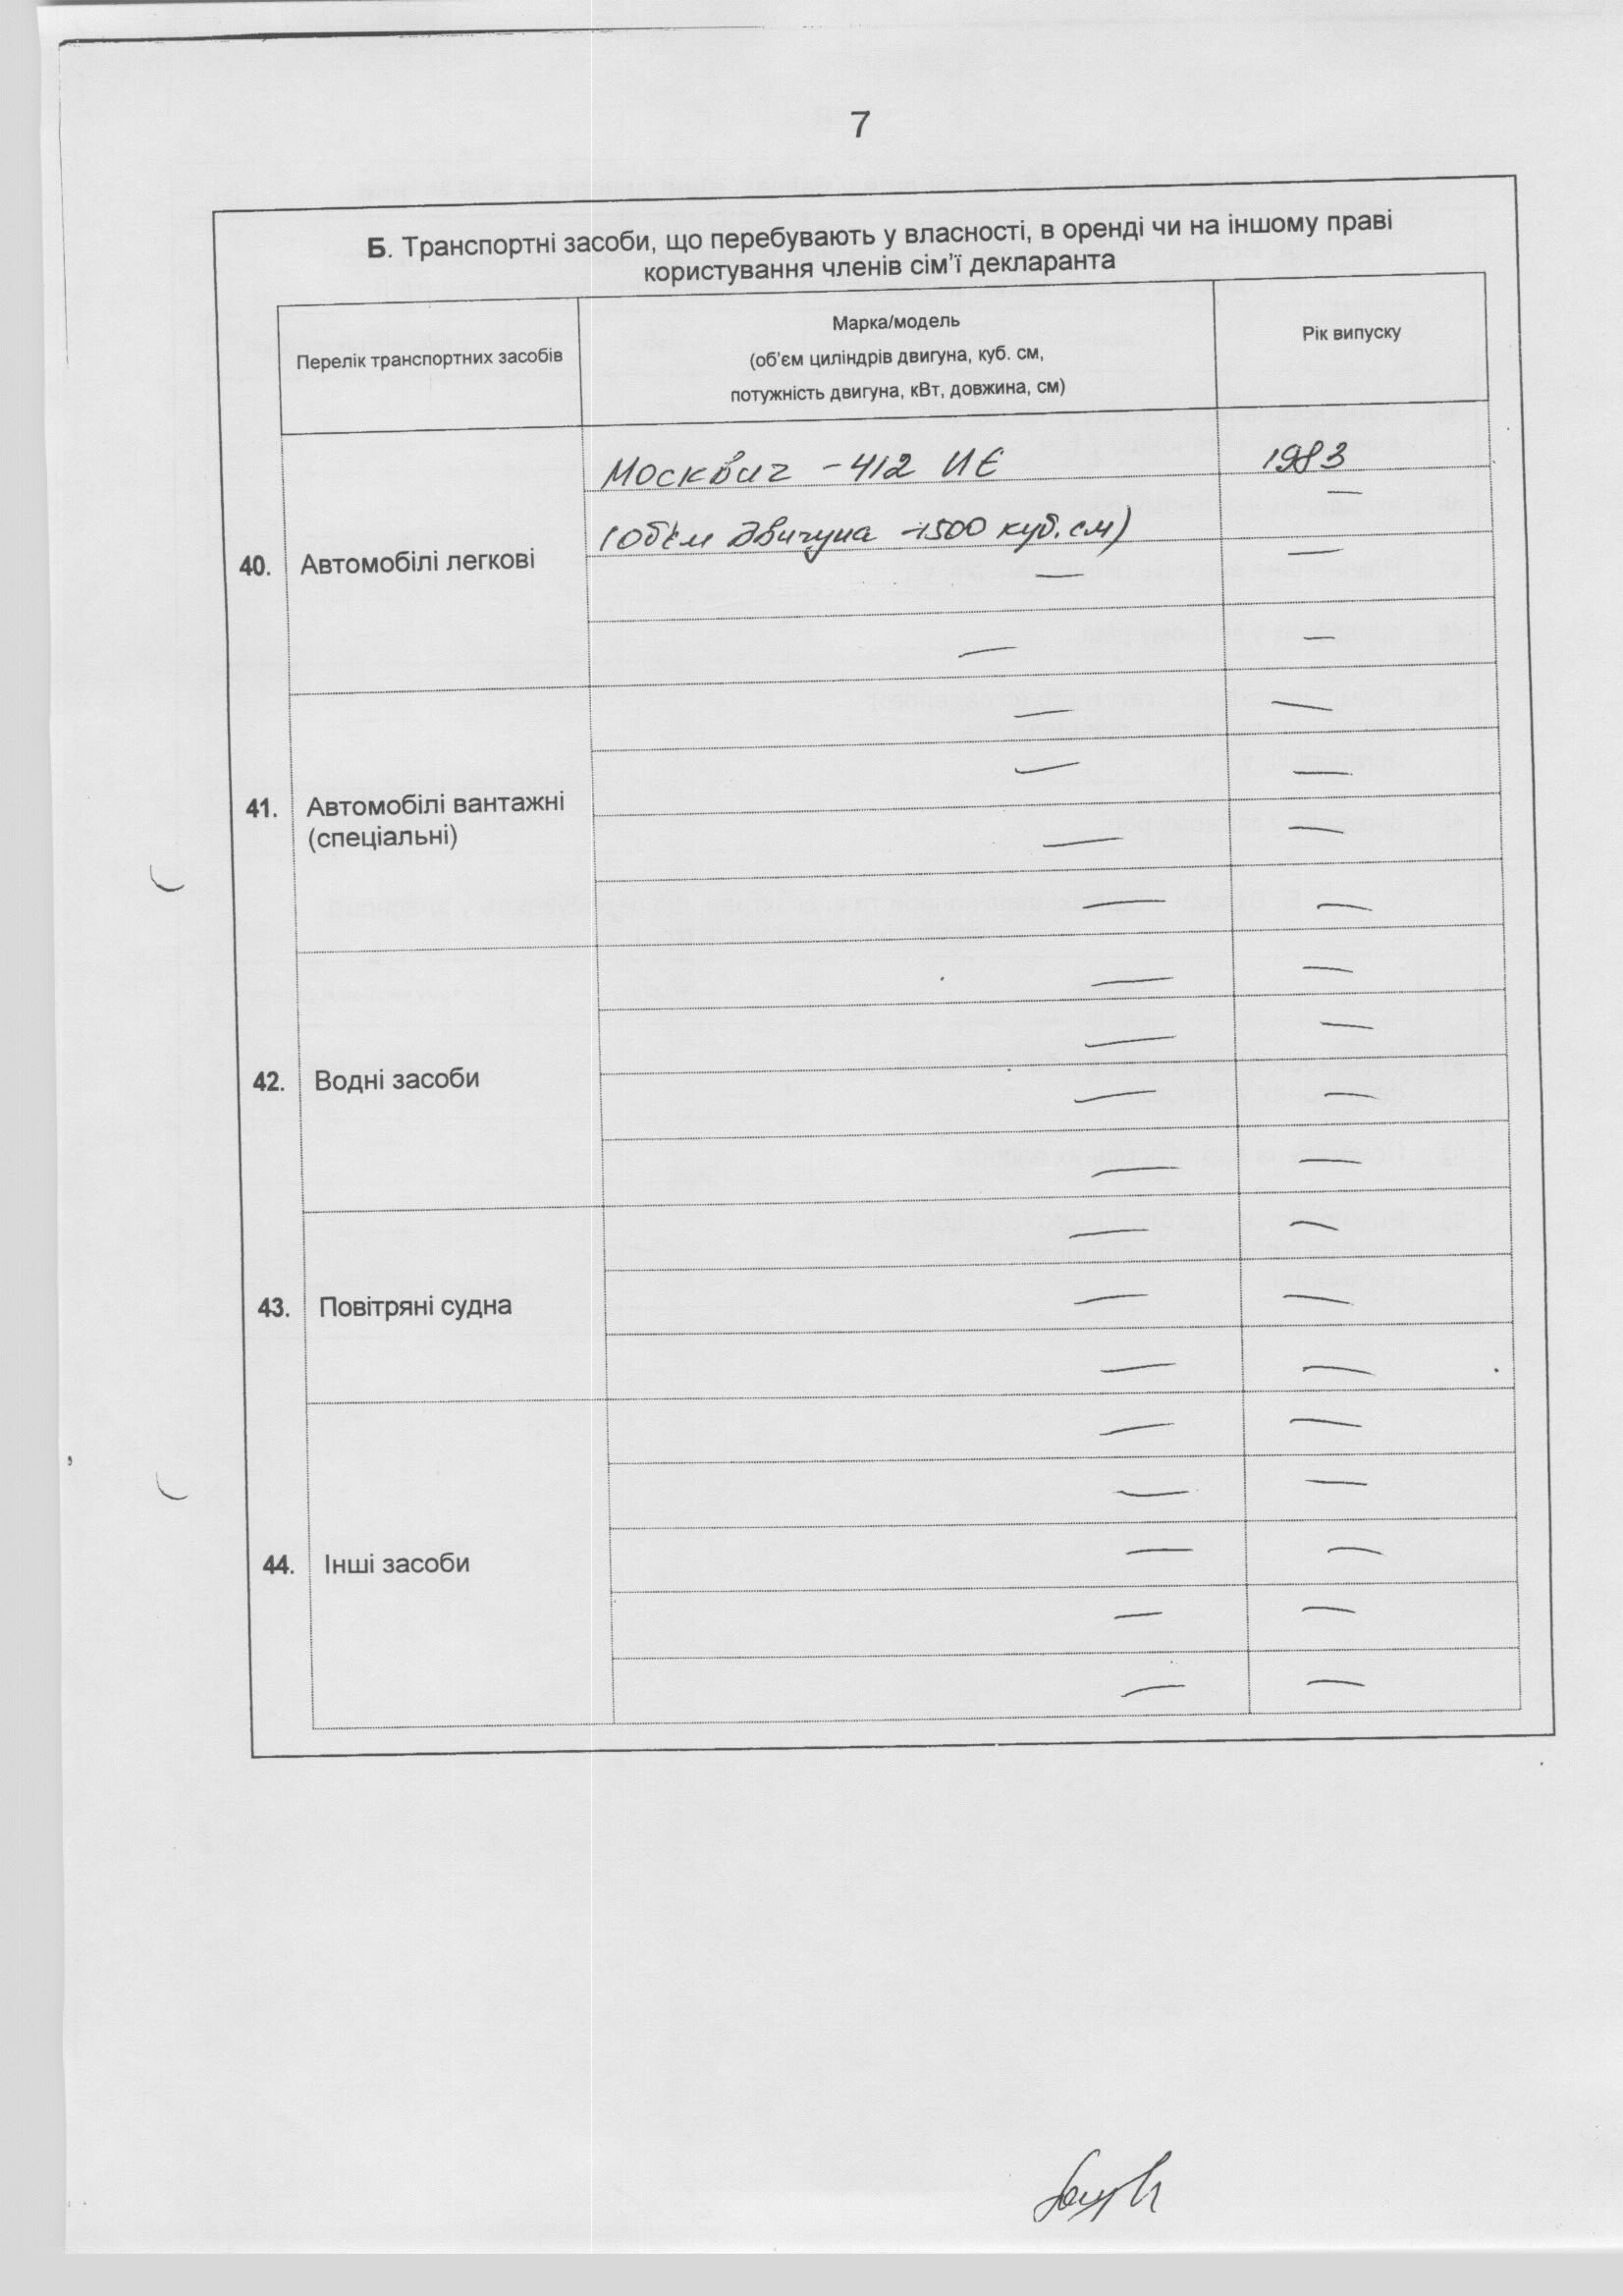 7
Б. Транспортні засоби, що перебувають у власності, в оренді чи на іншому праві
користування членів сім'ї декларанта
Перелік транспортних засобів
Марка/модель
(об'єм циліндрів двигуна, куб. см,
потужність двигуна, кВт, довжина, см)
Рік випуску
40. Автомобілі легкові
Москвич - 412 ИЄ 1983
—
(об'єм двигуна - 1500 куб. см) —
—
— —
41. Автомобілі вантажні
(спеціальні)
— —
— —
— —
— —
42. Водні засоби
— —
— —
— —
— —
43. Повітряні судна
— —
— —
— —
44. Інші засоби
— —
— —
— —
— —
— —